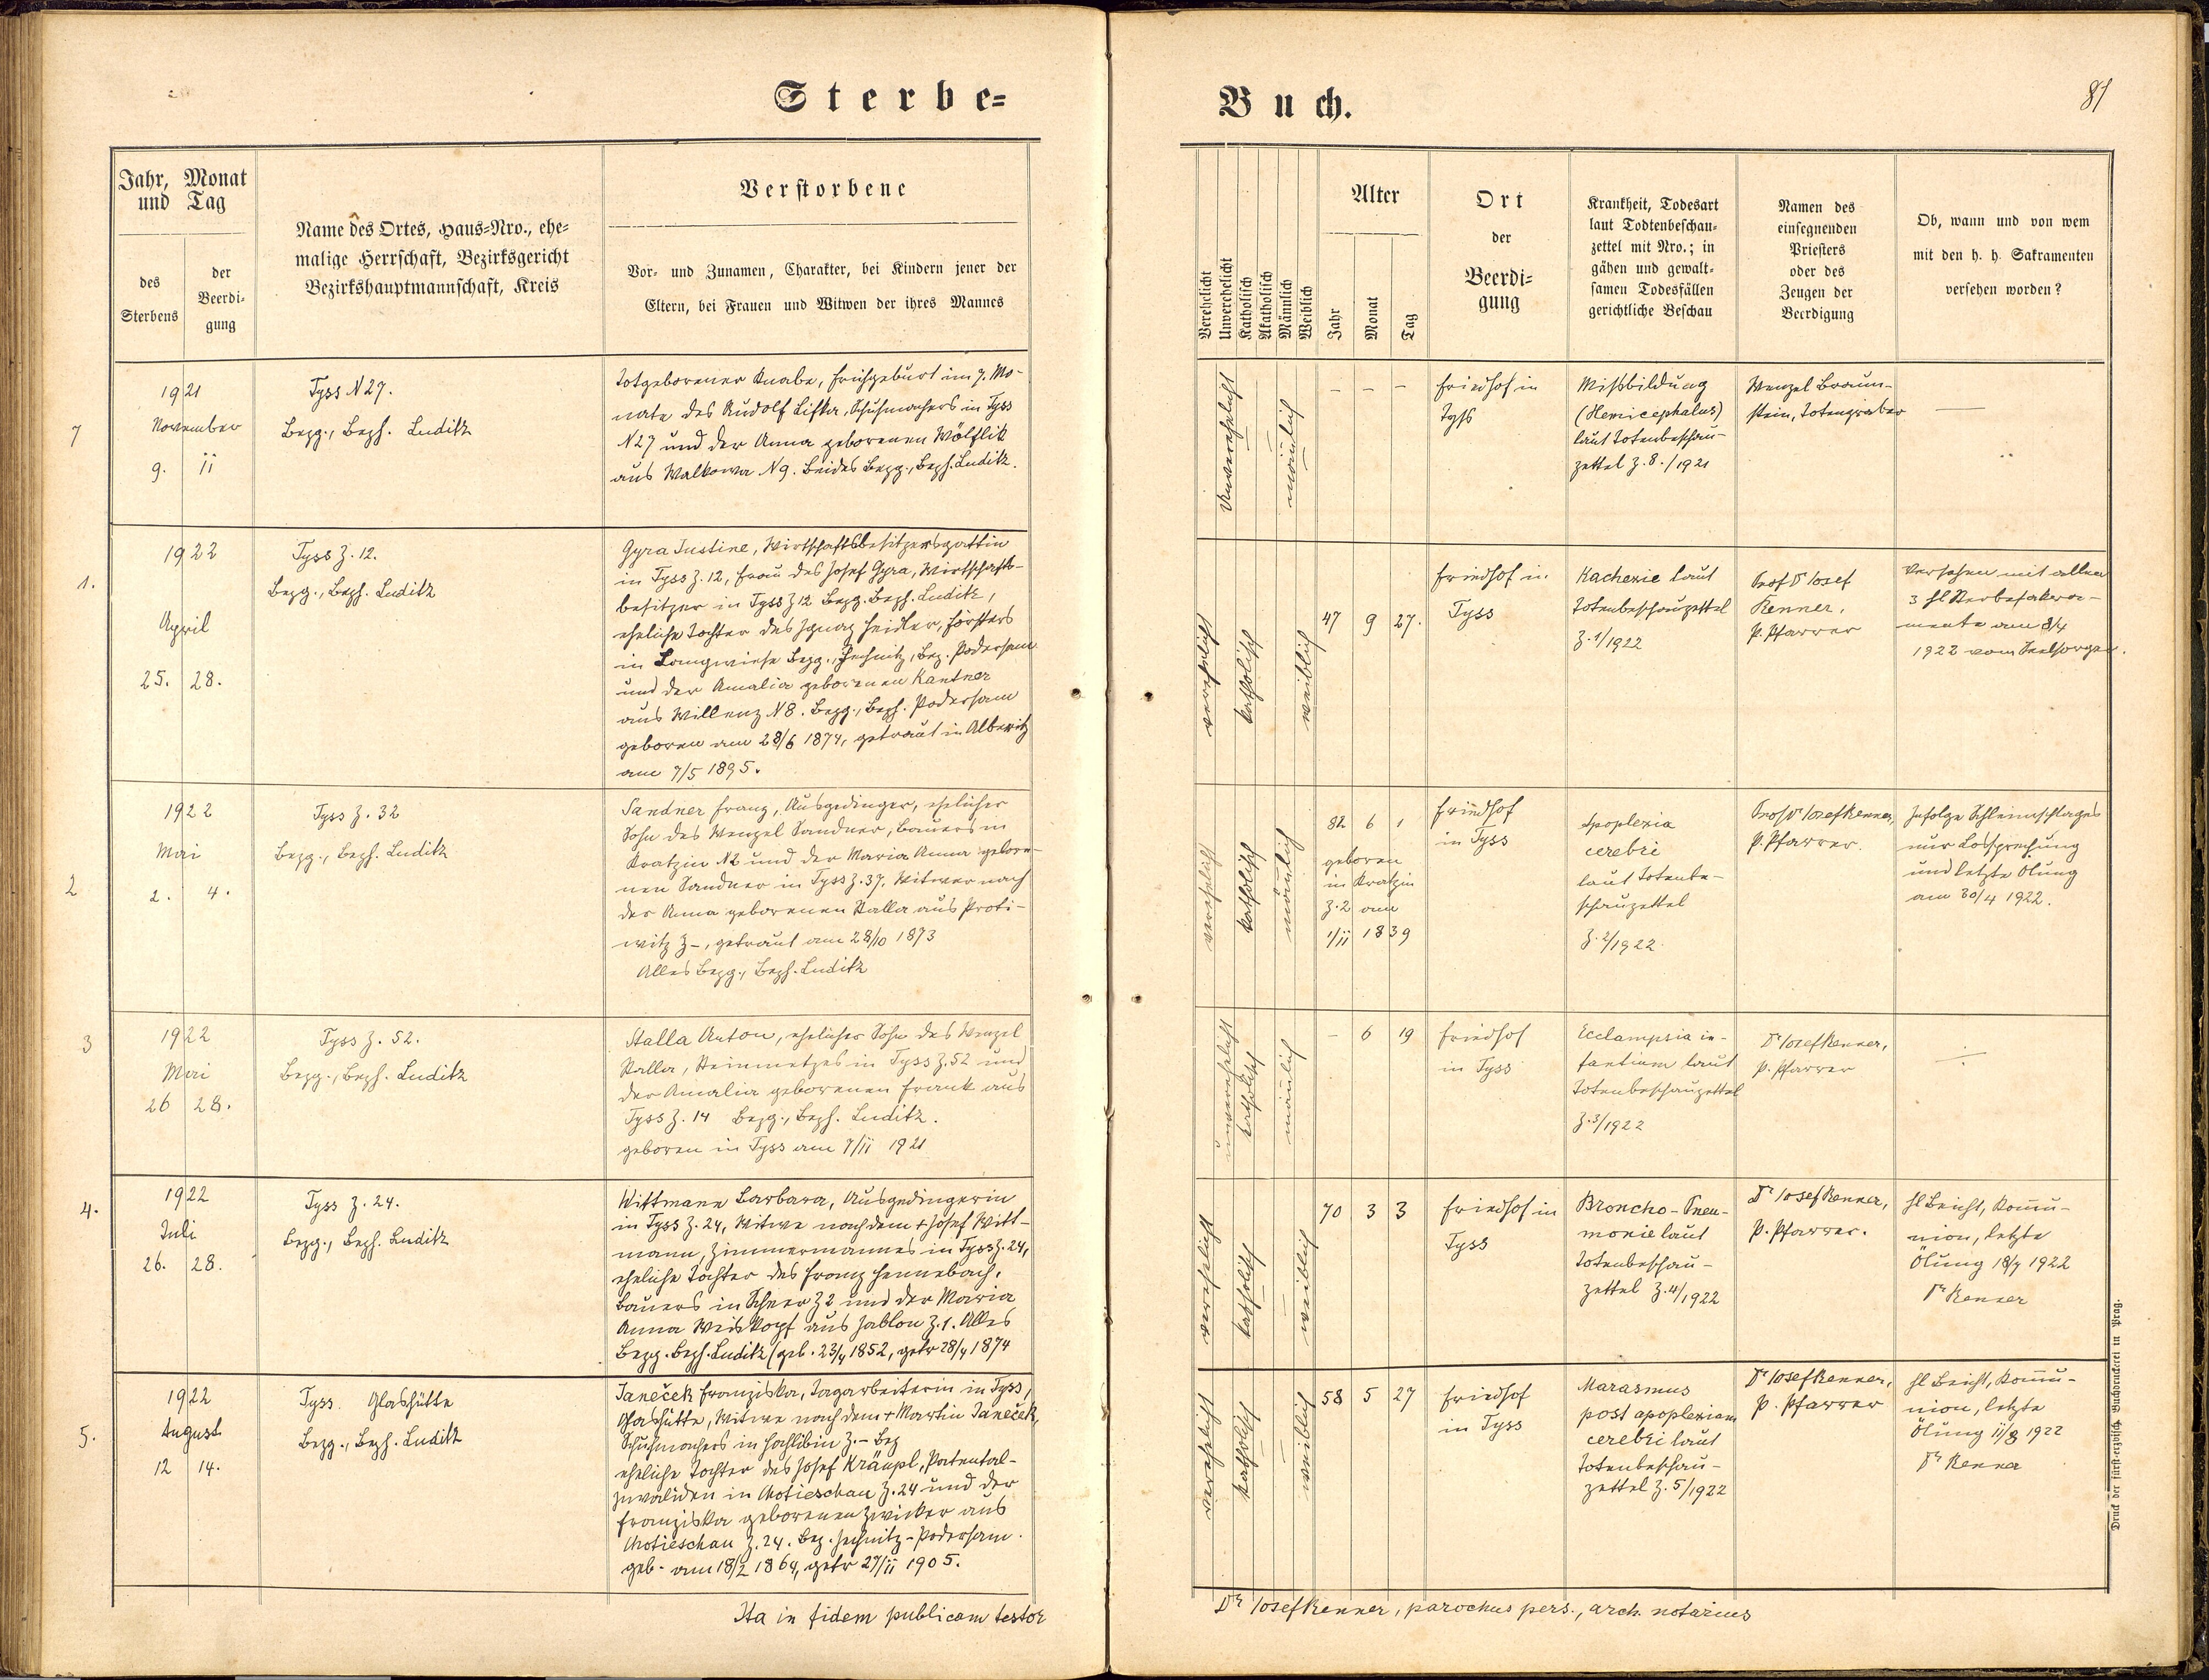 Sterbe=
Buch.
81
Jahr, Monat
und Tag
des
Sterbens
der
Beerdi-
gung
Name des Ortes, Haus=Nro., ehe=
malige Herrschaft, Bezirksgericht
Bezirkshauptmannschaft, Kreis
Verstorbene
Vor- und Zunamen, Charakter, bei Kindern jener der
Eltern, bei Frauen und Witwen der ihres Mannes
Verehelicht
Unverehelicht
Katholisch
Akatholisch
Männlich
Weiblich
Alter
Jahr
Monat
Tag
Ort
der
Beerdi=
gung
Krankheit, Todesart
laut Todtenbeschau=
zettel mit Nro.; in
gähen und gewalt=
samen Todesfällen
gerichtliche Beschau
Namen des
einsegnenden
Priesters
oder des
Zeugen der
Beerdigung
Ob, wann und von wem
mit den h. h. Sakramenten
versehen worden?
7
1921
November
9. 11
Tyss N 27.
Bezg., Bezh. Luditz
Totgeborener Knabe, Frühgeburt im 7. Mo-
nate des Rudolf Lifka, Schuhmachers in Tyss
N27 und der Anna geborenen Wölflik
aus Walkowa N9. Beides Bezg., Bezh. Luditz.
Unverehelicht
männlich
– – –
Friedhof in
Tyss
Missbildung
(Hemicephalus)
laut Totenbeschau-
zettel Z. 8./1921
Wenzel Braun-
stein, Totengräber
—
1.
1922
April
25. 28.
Tyss Z. 12.
Bezg., Bezh. Luditz
Gyra Justine, Wirtschaftsbesitzersgattin
in Tyss Z. 12, Frau des Josef Gyra, Wirtschafts-
besitzer in Tyss Z 12 Bezg. Bezh. Luditz,
eheliche Tochter des Ignaz Heidler, Försters
in Langwiese Bezg., Jechnitz, Bez. Podersam
und der Amalia geborenen Kantner
aus Willenz N8. Bezg., Bezh. Podersam
geboren am 28/6 1874, getraut in Alberitz
am 7/5 1895.
verehelicht
katholisch
weiblich
47 9 27.
Friedhof in
Tyss
Kachexie laut
Totenbeschauzettel
Z. 1/1922
Prof Dr Josef
Renner,
p. Pfarrer
Versehen mit allen
3 hl Sterbesakra-
mente am 8/4
1922 vom Seelsorger.
2
1922
Mai
2. 4.
Tyss Z. 32
Bezg., Bezh. Luditz
Sandner Franz, Ausgedinger, ehelicher
Sohn des Wenzel Sandner, Bauers in
Kratzin N2 und der Maria Anna gebore-
nen Sandner in Tyss Z. 37, Witwer nach
der Anna geborenen Stalla aus Proti-
witz Z –, getraut am 28/10 1873
Alles Bezg., Bezh. Luditz
verehelicht
katholisch
männlich
82 6 1
geboren
in Kratzin
Z. 2 am
1/11 1839
Friedhof
in Tyss
Apoplexia
cerebri
laut Totenbe-
schauzettel
Z. 2/1922.
Prof Dr Josef Renner,
p. Pfarrer.
Infolge Schleimschlages
nur Lossprechung
und letzte Ölung
am 30/4 1922.
3
1922
Mai
26 28.
Tyss Z. 52.
Bezg., Bezh. Luditz
Stalla Anton, ehelicher Sohn des Wenzel
Stalla, Steinmetzes in Tyss Z. 52 und
der Amalia geborenen Frank aus
Tyss Z. 14 Bezg., Bezh. Luditz.
geboren in Tyss am 7/11 1921
unverehelicht
katholisch
männlich
– 6 19
Friedhof
in Tyss
Ecclampsia in-
fantium laut
Totenbeschauzettel
Z. 3/1922
Dr Josef Renner,
p. Pfarrer
—
4.
1922
Juli
26. 28.
Tyss Z. 24.
Bezg., Bezh. Luditz
Wittmann Barbara, Ausgedingerin
in Tyss Z. 24, Witwe nach dem + Josef Witt-
mann, Zimmermannes in Tyss Z. 24,
eheliche Tochter des Franz Hennebach,
Bauers in Z2 und der Maria
Anna Weiskopf aus Jablon Z. 1. Alles
Bezg. Bezh. Luditz (geb. 23/4 1852, getr 28/4 1874
verehelicht
katholisch
weiblich
70 3 3
Friedhof in
Tyss
Broncho-Pneu-
monie laut
Totenbeschau-
zettel Z. 4/1922
Dr Josef Renner,
p. Pfarrer.
hl Beicht, Kom̅u-
nion, letzte
Ölung 18/7 1922
Dr Renner
5.
1922
August
12 14.
Tyss. Glashütte
Bezg., Bezh. Luditz
Janeček Franziska, Tagarbeiterin in Tyss,
Glashütte, Witwe nach dem + Martin Janeček,
Schuhmachers in Hochlibin Z. – Bez
eheliche Tochter des Josef Kräupl, Patental-
invaliden in Chotieschau Z. 24 und der
Franziska geborenen Zwicker aus
Chotieschau Z. 24. Bez. Jechnitz-Podersam.
geb. am 18/2 1864, getr 27/11 1905.
verehelicht
katholisch
weiblich
58 5 27
Friedhof
in Tyss
Marasmus
post apoplexiam
cerebri laut
Totenbeschau-
zettel Z. 5/1922
Dr Josef Renner,
p. Pfarrer
hl Beicht, Kom̅u-
nion, letzte
Ölung 11/8 1922
Dr Renner
Ita in fidem publicam testor
Dr Josef Renner, parochus pers., arch. notarius
Druck der fürst-erzbisch. Buchdruckerei in Prag.